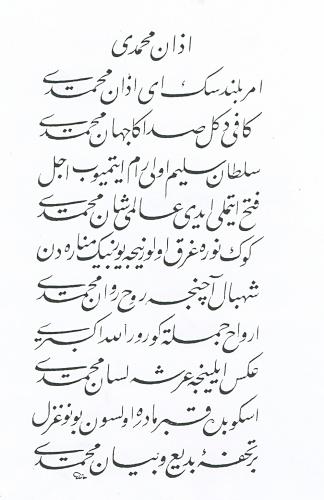 اذان محمدی
امر بلندسک ای اذان محمدی
کافی دکل صداکا جهان محمدی
سلطان سلیم اولی رام ایتمیوب اجل
فتح ایتملی ایدی عالمی شان محمدی
کوک نوره غرق اولور نیجه یوز بیک مناره دن
شهبال آچنجه روح روان محمدی
ارواح جمله کورور الله اکبری
عکس ایلینجه عرشه لسان محمدی
اسکوبدن قبر مادره اولسون بو نو غزل
بر تحفهٔ بدیع و بیان محمدی